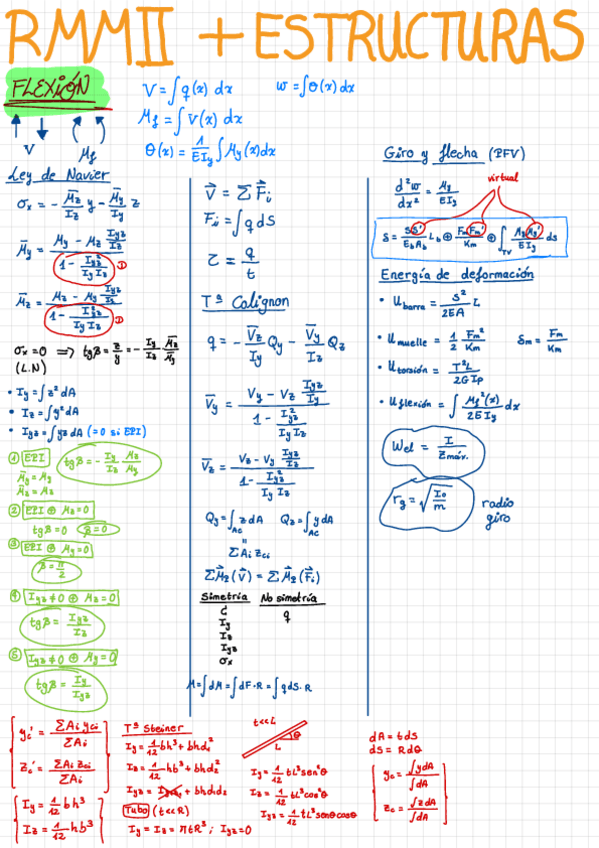 RMMII + ESTRUCTURAS
FLEXIÓN
V = ∫q(x) dx
w = ∫θ(x) dx
M_f = ∫V(x) dx
θ(x) = 1/EI_y ∫M_y(x)dx
V
M_f
Ley de Navier
σ_x = - M̄_z/I_z y - M̄_y/I_y z
M̄_y = (M_y - M_z I_yz/I_z) / (1 - I_yz²/(I_y I_z)) D
M̄_z = (M_z - M_y I_yz/I_z) / (1 - I_yz²/(I_y I_z)) D
σ_x = 0 ⟹ tgβ = z/y = - I_y/I_z M̄_z/M̄_y
(L.N)
• I_y = ∫z² dA
• I_z = ∫y² dA
• I_yz = ∫yz dA (=0 si EPI)
① EPI tgβ = - I_y/I_z M_z/M_y
M̄_y = M_y
M̄_z = M_z
② EPI ⊕ M_z = 0
tgβ = 0 β = 0
③ EPI ⊕ M_y = 0
β = π/2
④ I_yz ≠ 0 ⊕ M_z = 0
tgβ = I_yz/I_z
⑤ I_yz ≠ 0 ⊕ M_y = 0
tgβ = I_y/I_yz
V⃗ = Σ F⃗_i
F_i = ∫q dS
τ = q/t
Tª Colignon
q = - V̄_z/I_y Q_y - V̄_y/I_z Q_z
V̄_y = (V_y - V_z I_yz/I_y) / (1 - I_yz²/(I_y I_z))
V̄_z = (V_z - V_y I_yz/I_z) / (1 - I_yz²/(I_y I_z))
Q_y = ∫_AC z dA Q_z = ∫_AC y dA
=
ΣA_i z_ci
ΣM⃗_2(V⃗) = ΣM⃗_2(F⃗_i)
Simetría No simetría
C q
I_y
I_z
I_yz
σ_x
M = ∫dM = ∫dF·R = ∫q dS·R
Giro y flecha (PFV)
virtual
d²w/dx² = M_y/EI_y
δ = SS'/E_bA_b L_b ⊕ F_mF_m'/K_m ⊕ ∫_TV M_yM_y'/EI_y ds
Energía de deformación
• U_barra = S²/2EA L
• U_muelle = 1/2 F_m²/K_m δ_m = F_m/K_m
• U_torsión = T²L/2GI_p
• U_flexión = ∫ M_f²(x)/2EI_y dx
W_el = I/z_máx.
r_g = √(I_o/m) radio
giro
y_c' = ΣA_i y_ci/ΣA_i
z_c' = ΣA_i z_ci/ΣA_i
I_y = 1/12 bh³
I_z = 1/12 hb³
Tª Steiner
I_y = 1/12 bh³ + bhd_1²
I_z = 1/12 hb³ + bhd_2²
I_yz = I_yz + bhd_1d_2
Tubo (t<<R)
I_y = I_z = πtR³ ; I_yz = 0
t<<L
θ
L
I_y = 1/12 tL³sen²θ
I_z = 1/12 tL³cos²θ
I_yz = 1/12 tL³senθcosθ
dA = tds
ds = Rdθ
y_c = ∫ydA/∫dA
z_c = ∫zdA/∫dA